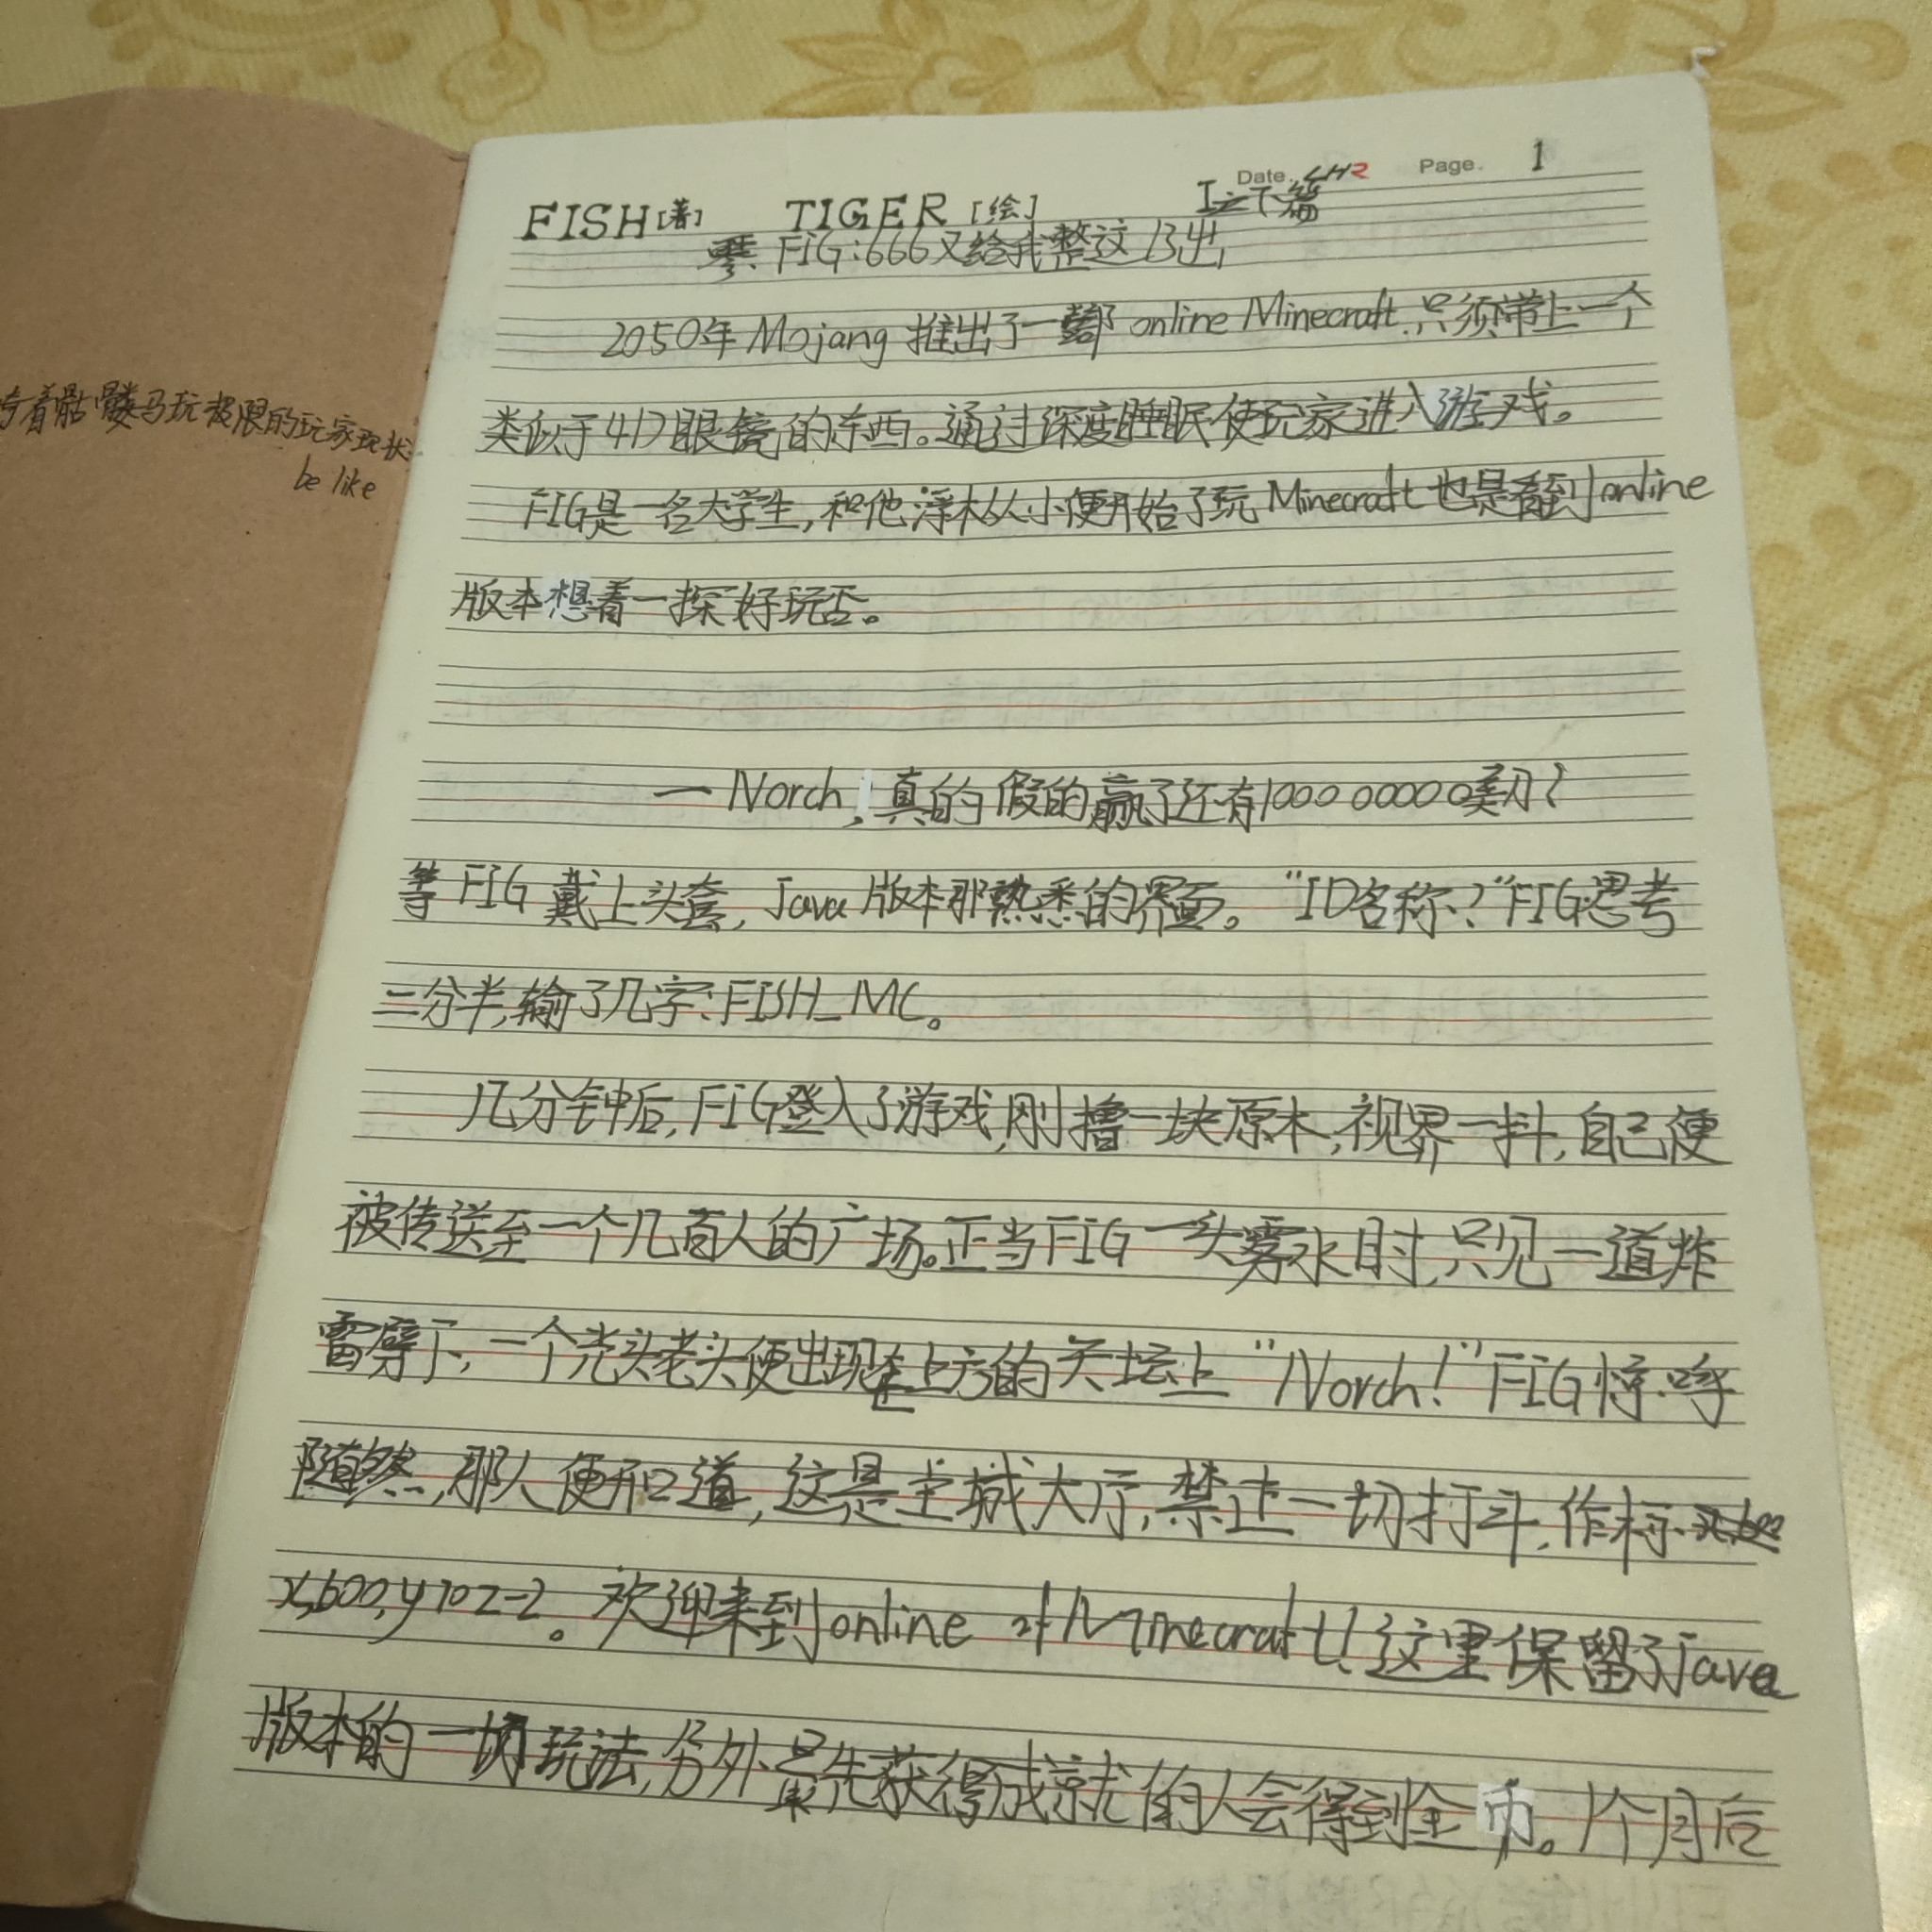 Date. LHR Page. 1
FISH[著] TIGER[绘] I之下篇
零. FIG:666又给我整这13出
2050年Mojang推出了一部 online Minecraft.只须带上一个
类似于4D眼镜的东西。通过深度睡眠使玩家进入游戏。
FIG是一名大学生,和他浮木从小便开始了玩Minecraft也是看到online
版本想着一探好玩否。
一 Norch!真的假的赢了还有100000000美刀?
等FIG戴上头套,Java版本那熟悉的界面。“ID名称?”FIG思考
三分半,输了几字:FISH_MC。
几分钟后,FIG登入了游戏,刚撸一块原木,视界一抖,自己便
被传送至一个几百人的广场。正当FIG一头雾水时,只见一道炸
雷劈下,一个光头老头便出现在上方的天坛上“Norch!”FIG惊呼
随然,那人便开口道,这是主城大厅,禁止一切打斗,作标
x,600,y70z-2。欢迎来到online of Minecraft!这里保留了java
版本的一切玩法,另外最先获得成就的人会得到金币。1个月后
着骷髅马玩极限的玩家现状
be like